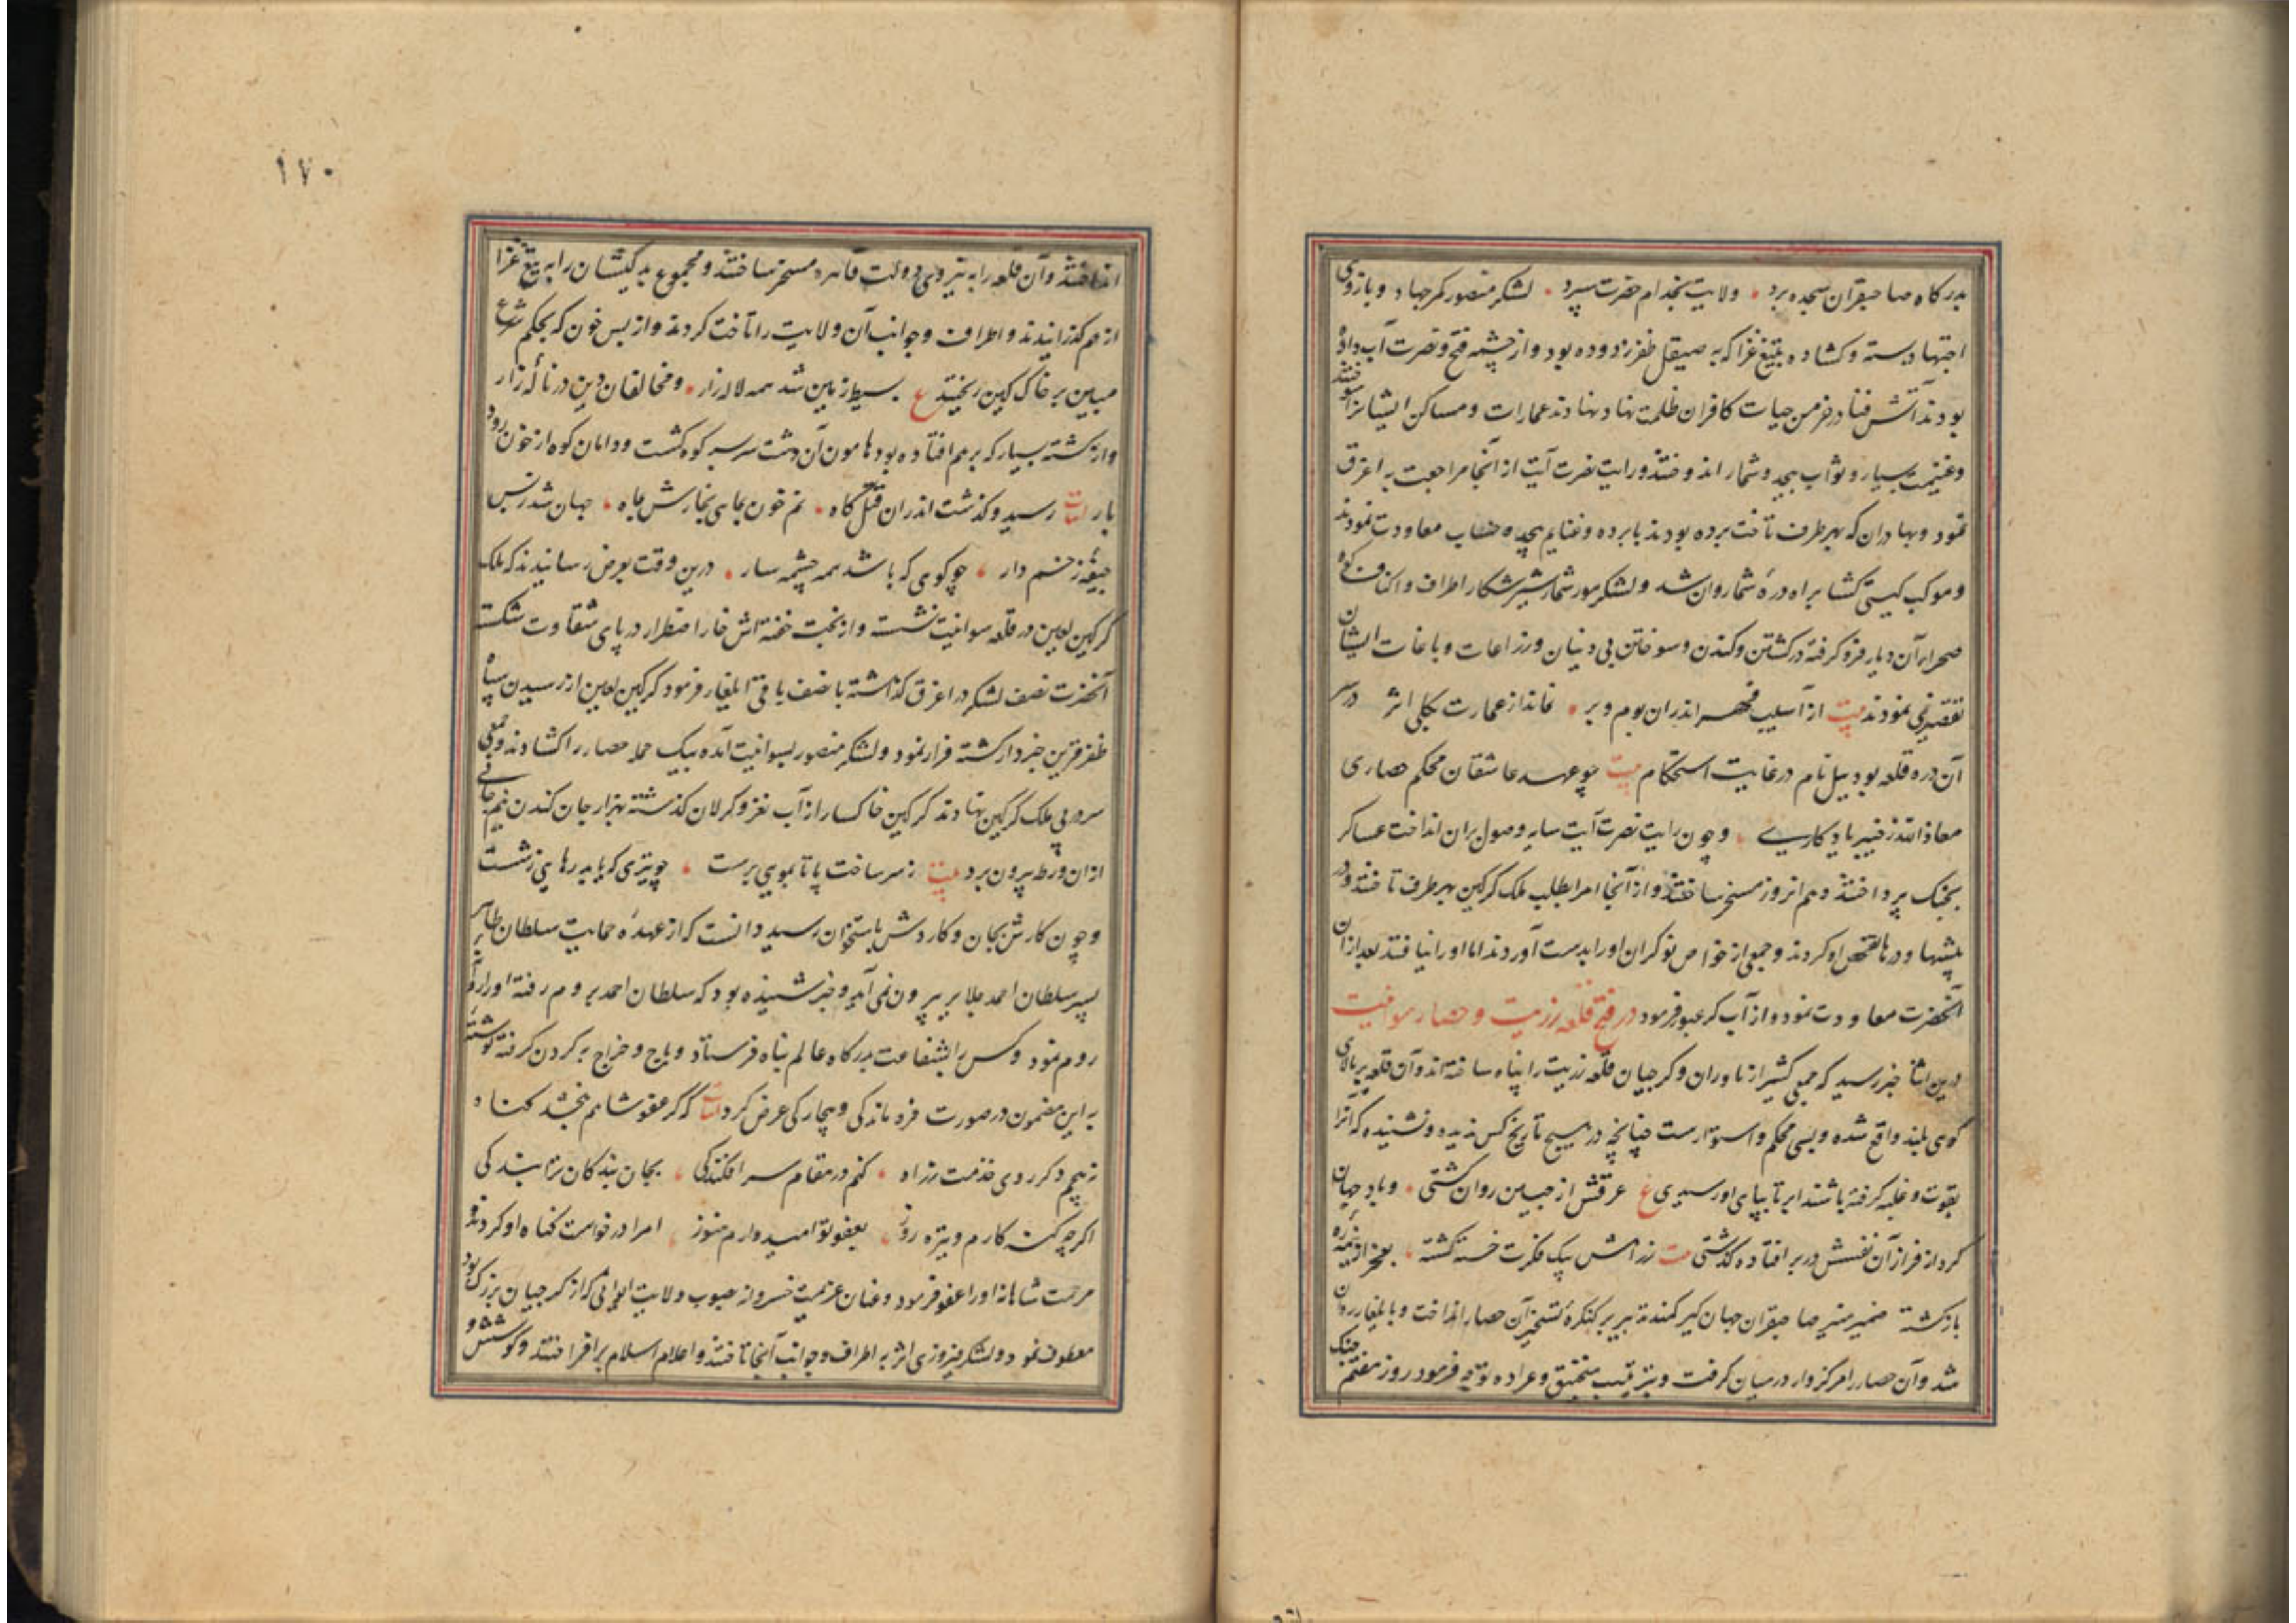 بدرگاه صاحبقران سجده برد ، ولایت بخدام حضرت سپرد ، لشکر منصور کمر جهاد و بازوی
اجتهاد بسته و کشاده بتیغ غزا که به صیقل ظفر زدوده بود و از چشمه فتح و نصرت آب داده
بودند آتش فنا در خرمن حیات کافران ظلمت نهاد نهادند عمارات و مساکن ایشانرا سوختند
و غنیمت بسیار و ثواب بیحد و شمار اندوختند و رایت نصرت آیت از آنجا مراجعت به اغرق
نمود و بهادران که بهر طرف تاخت برده بودند با برده و غنایم بیحد و حساب معاودت نمودند
و موکب گیتی کشا براه دره شما روان شد و لشکر مور شمار شیر شکار اطراف و اکناف کوه
صحراء آن دیار فرو گرفته در کشتن و کندن و سوختن بی دینان و زراعات و باغات ایشان
تقصیر نمی نمودند بیت از آسیب قهر اندران بوم و بر ، نماند از عمارت بکلی اثر در سر
آن دره قلعه بود بیل نام در غایت استحکام بیت چو عهد عاشقان محکم حصاری
معاذ الله ز خیبر یادگاری ، و چون رایت نصرت آیت سایه وصول بران انداخت عساکر
بجنک پرداختند و هم انروز مسخر ساختند و از آنجا امرا بطلب ملک گرگین بهر طرف تاختند و در
بیشها و درها تفحص او کردند و جمعی از خواص نوکران او را بدست آوردند اما او را نیافتند بعد ازان
آنحضرت معاودت نمود و از آب کر عبور فرمود در فتح قلعه زریت و حصار سوانیت
درین اثنا خبر رسید که جمعی کثیر از ناوران و گرجیان قلعه زریت را پناه ساخته اند و آن قلعه بر بالای
کوهی بلند واقع شده و بسی محکم و استوارست چنانچه در هیچ تاریخ کس ندیده و نشنیده که آنرا
بقوت و غلبه گرفته باشند ابر تا بپای او رسیدی ع عرقش از جبین روان گشتی ، و باد جهان
گرد از فراز آن نفسش در بر افتاده گذشتی بیت ز راهش پیک فکرت خسته گشته ، بعجز از نیمه ره
بازگشته ضمیر منیر صاحبقران جهان گیر کمند تدبیر بر کنگره تسخیر آن حصار انداخت و بایلغار روان
شد و آن حصار را مرکزوار در میان گرفت و بترتیب منجنیق و عراده توجه فرمود روز هفتم جنک
۱۷۰
انداختند و آن قلعه را به نیروی دولت قاهره مسخر ساختند و مجموع بد کیشان را به تیغ غزا
از هم گذرانیدند و اطراف و جوانب آن ولایت را تاخت کردند و از بس خون که بحکم شرع
مبین بر خاک کین ریختند ع بسیط زمین شد همه لاله زار ، و مخالفان دین در ناله زار
و از کشته بسیار که بر هم افتاده بود هامون آن دشت سربسر کوه گشت و دامان کوه از خون رود
بار ابیات رسید و گذشت اندران قتل گاه ، نم خون بماهی بخارش بماه ، جهان شد ز بس
جیفه زخم دار ، چو کوهی که باشد همه چشمه سار ، درین وقت بعرض رسانیدند که ملک
گرگین لعین در قلعه سوانیت نشست و از بخت خفته اش خار اضطرار در پای شقاوت شکست
آنحضرت نصف لشکر در اغرق گذاشته با نصف باقی ایلغار فرمود گرگین لعین از رسیدن سپاه
ظفر قرین خبردار گشته فرار نمود و لشکر منصور بسوانیت آمده بیک حمله حصار را کشادند و جمعی
سر در پی ملک گرگین نهادند گرگین خاکسار از آب نغز و کرلان گذشته بهزار جان کندن نیم جانی
ازان ورطه بیرون برد بیت ز سر ساخت پا تا بمویی برست ، چو تیری که یابد رهایی ز شست
و چون کارش بجان و کاردش باستخوان رسید دانست که از عهده حمایت سلطان طاهر
پسر سلطان احمد جلایر بیرون نمی آید و خبر شنیده بود که سلطان احمد بروم رفته او را روانه
روم نمود و کس را بشفاعت بدرگاه عالم پناه فرستاد و باج و خراج به گردن گرفته نوشته
به این مضمون در صورت فروماندگی و بیچارگی عرض کرد ابیات که گر عفو شاهم ببخشد گناه
نپیچم دگر روی خدمت ز راه ، کنم در مقام سر افکندگی ، بجان بندگان ترا بندگی
اگرچه گنه کارم و تیره روز ، بعفو تو امیدوارم هنوز ، امرا درخواست گناه او کردند و
مرحمت شاهانه او را عفو فرمود و عنان عزیمت خسروانه صوب ولایت ایوانی که از گرجیان بزرگ بود
معطوف نمود و لشکر فیروزی اثر به اطراف و جوانب آنجا تاختند و اعلام اسلام برافراختند و کوشش و